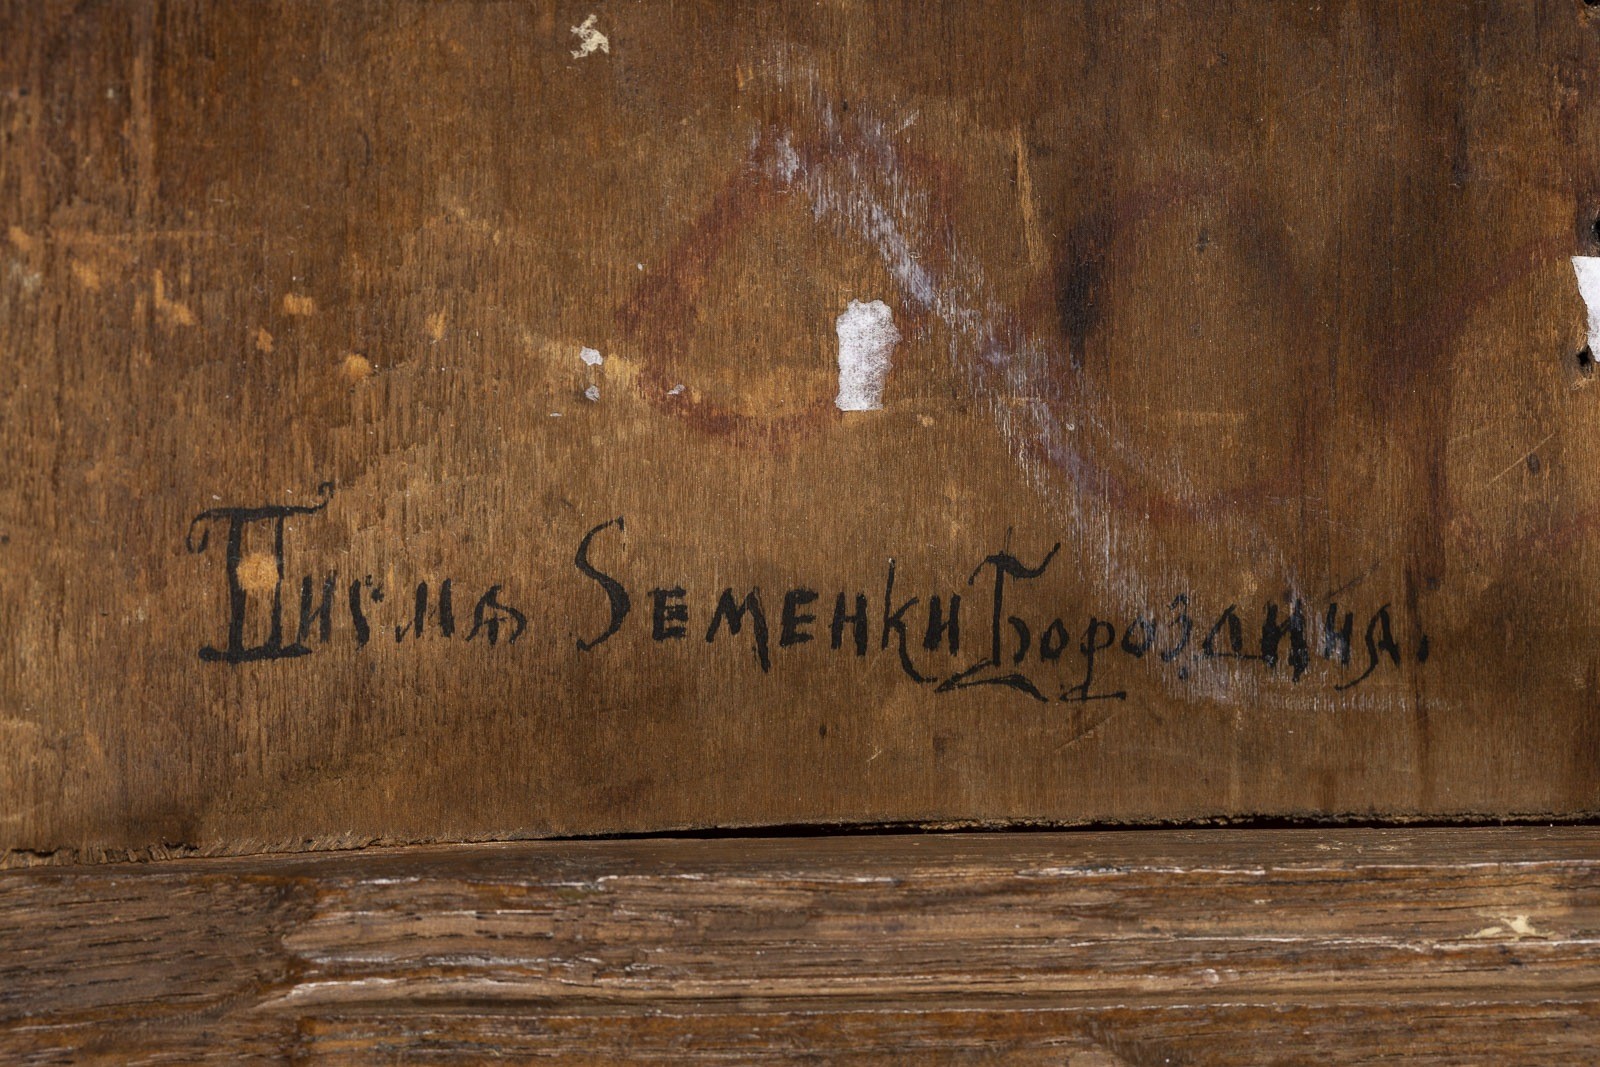 Писма Ѕеменки Бороздина.